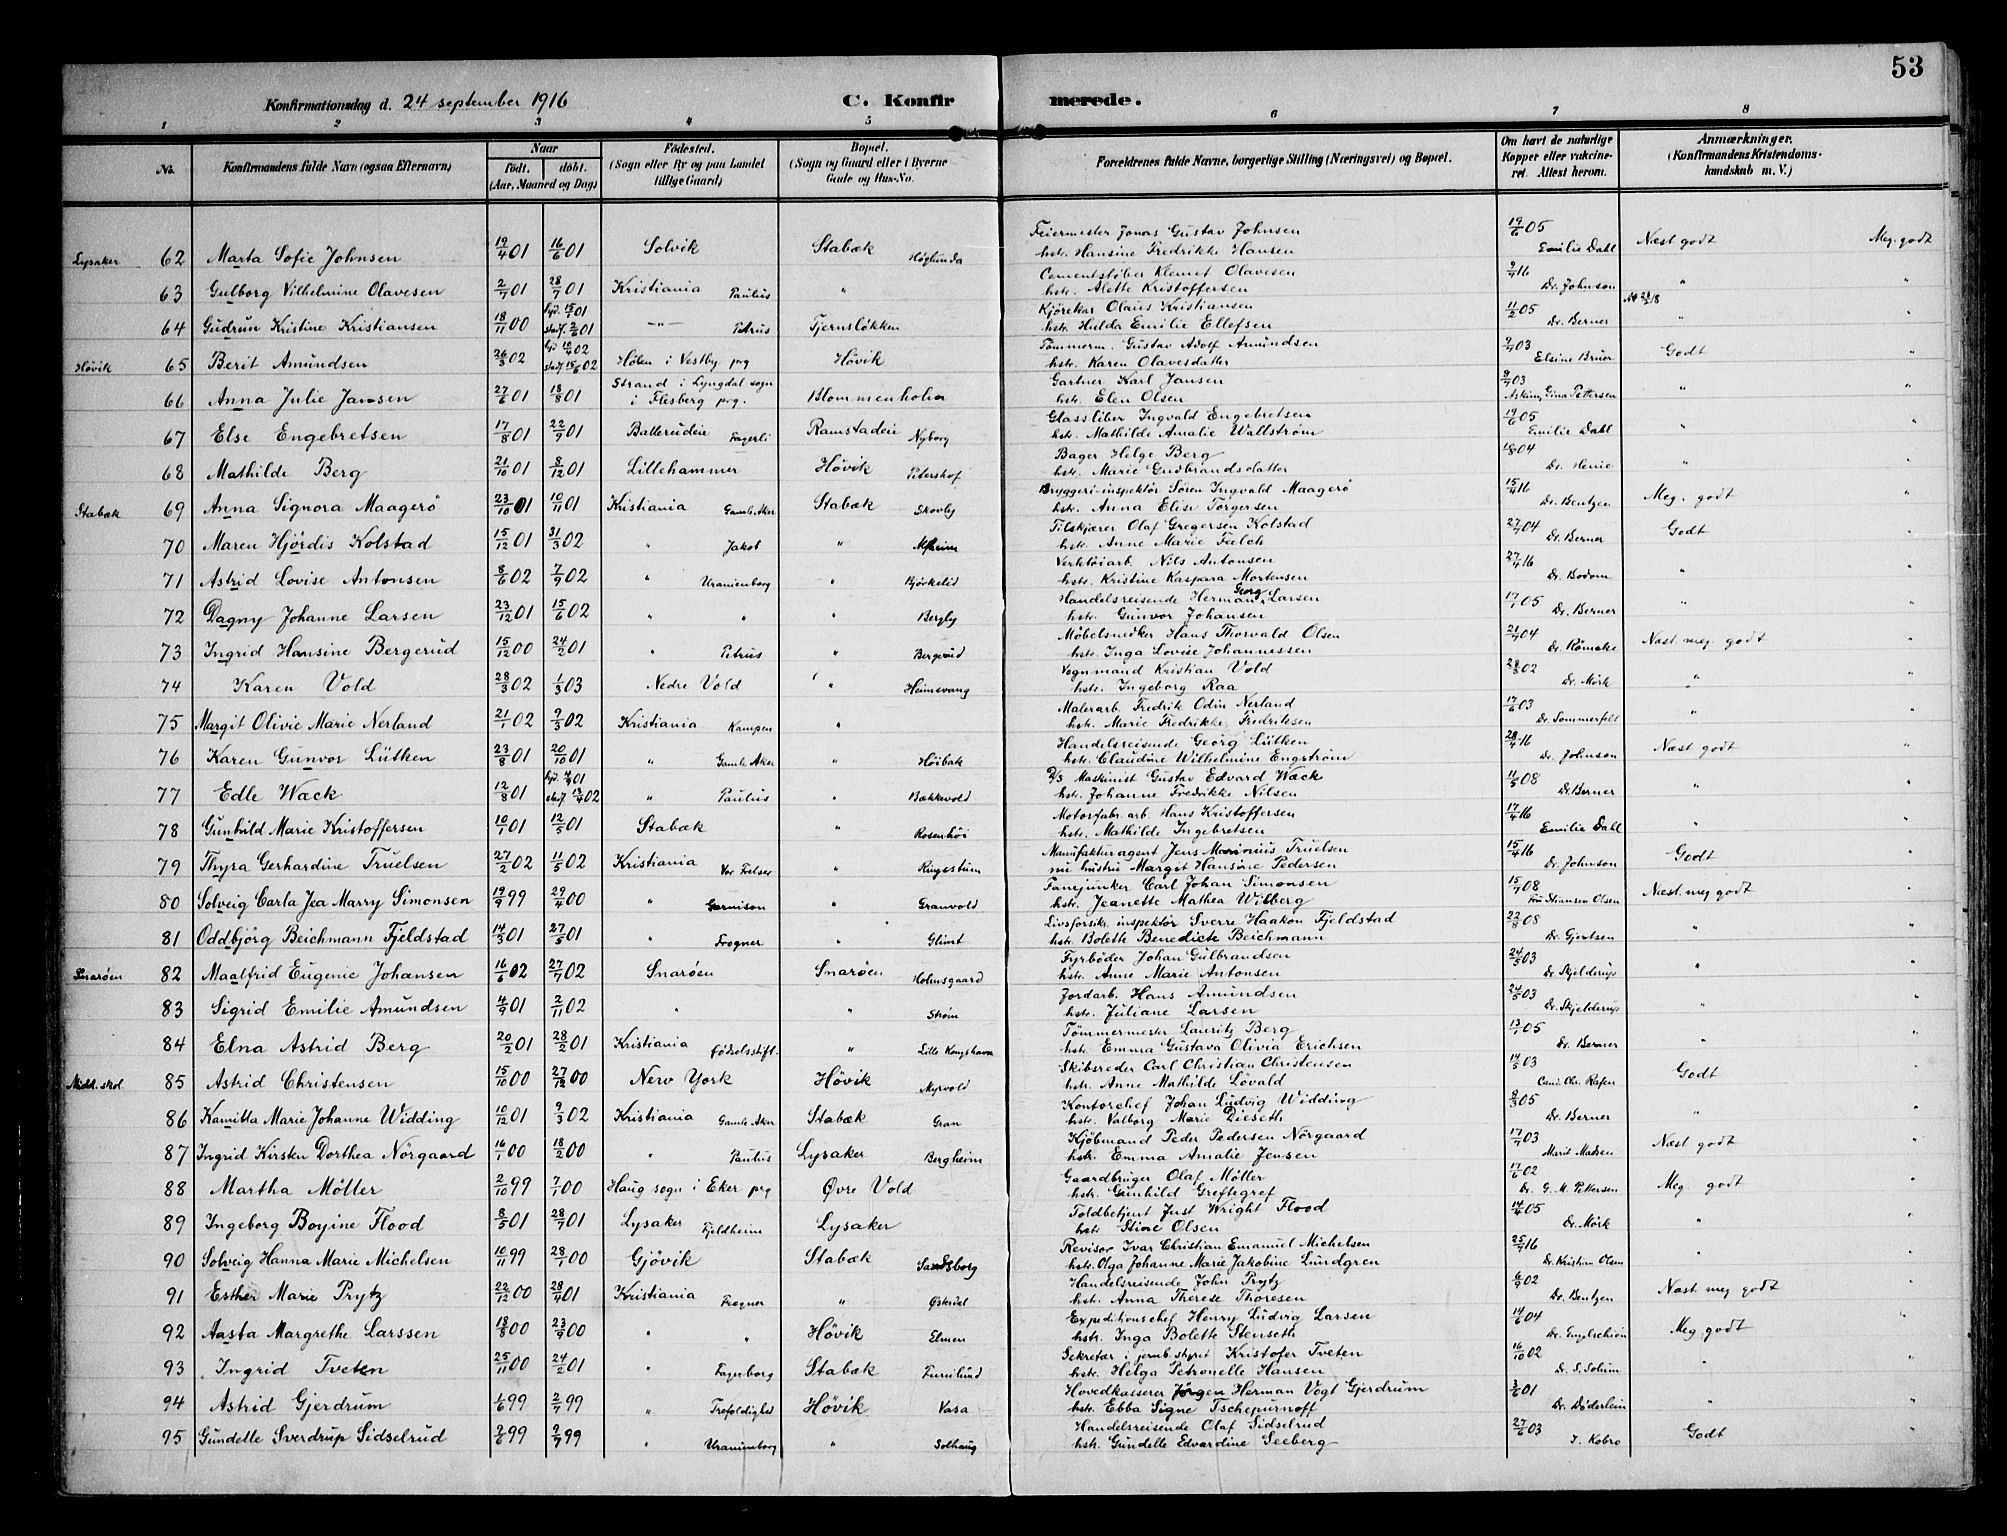 53
Konfirmationsdag d. 24 september 1916 C. Konfirmerede.
1 2 3 4 5 6 7 8
No. Konfirmandens fulde Navn (ogsaa Efternavn) Naar født. døbt. (Aar, Maaned og Dag) Fødested. (Sogn eller By og paa Landet tillige Gaard) Bopæl. (Sogn og Gaard eller i Byerne Gade og Hus-No. Forældrenes fulde Navne, borgerlige Stilling (Næringsvei) og Bopæl. Om havt de naturlige Kopper eller vakcineret. Attest herom. Anmærkninger. (Konfirmandens Kristendomskundskab m. V.)
Lysaker 62 Marta Sofie Johnsen 19/4 01 16/6 01 Solvik Stabæk Høglunda Feiermester Jonas Gustav Johnsen 19/6 05 Emilie Dahl Næst godt Meg. godt
hstr. Hansine Fredrikke Hansen
63 Gulborg Vilhelmine Olavesen 2/7 01 28/7 01 Kristiania Paulus " Cementstøber Klemet Olavesen 9/2 16 Dr. Johnson " "
hstr. Alette Kristoffersen
64 Gudrun Kristine Kristiansen 18/11 00 01 stadf. 01 —"— Petrus Fjernsløkken Kjørekar Olaus Kristiansen 11/2 05 Dr. Berner " "
hstr. Hulda Emilie Ellefsen
Høvik 65 Berit Amundsen 26/3 02 02 stadf. 15/6 02 Hølen i Vestby prg Høvik Tømmerm. Gustav Adolf Amundsen 03 Elsine Bruer Godt "
hstr. Karen Olavesdatter
66 Anna Julie Jansen 27/6 01 18/8 01 Strand i Lyngdal sogn i Flesberg prg. Blommenholm Gartner Karl Jansen 03 Askim, Gina Pettersen " "
hstr. Elen Olsen
67 Else Engebretsen 17/8 01 22/9 01 Ballerudeie Fagerli Ramstadeie Nyborg Glassliber Ingvald Engebretsen 19/6 05 Emilie Dahl " "
hstr. Mathilde Amalie Wallström
68 Mathilde Berg 21/10 01 8/12 01 Lillehammer Høvik Petershof Bager Helge Berg 04 Dr. Henie "
hstr. Marie Gudbrandsdatter
Stabæk 69 Anna Signora Maagerö 23/10 01 10/11 01 Kristiania Gamle Aker Stabæk Skovly Bryggeri-inspektør Søren Ingvald Maagerö 15/4 16 Dr. Bentzen Meg. godt "
hstr. Anna Elise Torgersen
70 Maren Hjördis Kolstad 15/12 01 31/3 02 " Jakob " Filskjærer Olaf Gregersen Kolstad 27/7 04 Dr. Berner Godt
hstr. Anne Marie Falch
71 Astrid Lovise Antonsen 8/6 02 7/9 02 " Uranienborg " Bjørkelid Verktøiarb. Nils Antonsen 27/4 16 Dr. Bodom " "
hstr. Kristine Kaspara Mortensen
72 Dagny Johanne Larsen 23/12 01 15/6 02 " " " Bergly Handelsreisende Herman Georg Larsen 17/1 05 Dr. Berner " "
hstr. Gunvor Johansen
73 Ingrid Hansine Bergerud 15/12 00 24/2 01 " Petrus " Bergerud Møbelsnedker Hans Thorvald Olsen 21/4 04 Dr. Rømcke Næst meg. godt "
hstr. Inga Lovise Johannessen
74 Karen Vold 28/3 02 1/3 03 Nedre Vold " Heimevang Vognmand Kristian Vold 02 Dr. Mörk " "
hstr. Ingeborg Raa
75 Margit Olivie Marie Nerland 21/1 02 9/3 02 Kristiania Kampen " Malerarb. Fredrik Odin Nerland 17/6 03 Dr. Sommerfelt "
hstr. Marie Fredrikke Fredriksen
76 Karen Gunvor Lütken 23/8 01 20/10 01 " Gamle Aker " Høibak Handelsreisende Georg Lütken 28/4 16 Dr. Johnson Næst godt "
hstr. Claudine Wilhelmine Engström
77 Edle Wack 12/8 01 01 stadf. 13/4 02 " Paulus " Bækkevold D/S Maskinist Gustav Edvard Wack 11/5 08 Dr. Berner " "
hstr. Johanne Fredrikke Nilsen
78 Gunhild Marie Kristoffersen 10/1 01 12/5 01 Stabæk " Rosenhöi Motorfabr. arb. Hans Kristoffersen 17/4 16 Emilie Dahl " "
hstr. Mathilde Ingebretsen
79 Thyra Gerhardine Truelsen 27/2 02 11/5 02 Kristiania Vor Frelser " Ringsstun Manufakturagent Jens Marinius Truelsen 15/4 16 Dr. Johnson Godt "
nu hustru Margit Hansine Pedersen
80 Solveig Carla Jea Marry Simonsen 19/9 99 29/4 00 " Garnison " Granvold Fanejunker Carl Johan Simonsen 15/7 08 Næst meg godt "
hstr. Jeanette Mathea Wilberg
81 Oddbjörg Beichmann Fjeldstad 14/3 01 27/5 01 " Frogner " Glimt Livsforsik. inspektør Sverre Haakon Fjeldstad 22/8 08 Dr. Gjertsen " "
hstr. Bolette Benedicte Beichmann
Snarøen 82 Maalfrid Eugenie Johansen 16/6 02 27/7 02 Snarøen Snarøen Holmsgaard Fyrbøder Johan Gulbrandsen 24/5 03 Dr. Skjelderup " "
hstr. Anne Marie Antonsen
83 Sigrid Emilie Amundsen 4/9 01 2/11 02 " " Strøm Jordarb. Hans Amundsen 24/5 03 Dr. Skjelderup " "
hstr. Juliane Larsen
84 Elna Astrid Berg 20/2 01 28/2 01 Kristiania Fødselsstift. " Lille Kongshavn Tömmermester Lauritz Berg 13/1 05 Dr. Berner " "
hstr. Emma Gustava Olivia Erichsen
Midd. skol. 85 Astrid Christensen 15/10 00 27/12 00 New York Høvik Myrvold Skibsreder Carl Christian Christensen 14/5 03 Godt "
hstr. Anne Mathilde Lövald
86 Kamilla Marie Johanne Widding 10/12 01 9/3 02 Kristiania Gamle Aker Stabæk Gran Kontorchef Johan Ludvig Widding 05 Dr. Berner " "
hstr. Valborg Marie Dieseth
87 Ingrid Kirsten Dorthea Nörgaard 16/1 00 18/2 00 " Paulus Lysaker Bergheim Kjøbmand Peder Pedersen Nörgaard 17/7 03 Marit Madsen Næst godt "
hstr. Emma Amalie Jensen
88 Martha Möller 2/10 99 7/1 00 Haug sogn i Eker prg Øvre Vold Gaardbruger Olaf Möller 17/6 02 Dr. G. M. Pettersen Meg godt "
hstr. Gunhild Greftegref
89 Ingeborg Boyine Flood 8/5 01 28/7 01 Lysaker Fjeldheim Lysaker Toldbetjent Just Wright Flood 14/4 05 Dr. Mörk " "
hstr. Stine Olsen
90 Solveig Hanna Marie Michelsen 10/11 99 28/1 00 Gjövik Stabæk Sandsborg Revisor Ivar Christian Emanuel Michelsen 25/7 16 Dr. Kristian Olsen " "
hstr. Olga Johanne Marie Jakobine Lundgren
91 Esther Marie Prytz 22/12 00 28/4 01 Kristiania Frogner " Handelsreisende John Prytz 6/9 02 Dr. Bentzen Næst meg godt "
hstr. Anna Therese Thoresen
92 Aasta Margrethe Larssen 18/8 00 23/9 00 " " Høvik Elmen Expeditionschef Henry Ludvig Larsen 14/6 04 Dr. Engelschiøn Meg godt "
hstr. Inga Bolette Stenseth
93 Ingrid Tveten 25/11 00 24/2 01 " Fagerborg Stabæk Furulund Sekretær i jernb. styret Kristofer Tveten 16/10 02 Dr. S. Solum " "
hstr. Helga Petronelle Hansen
94 Astrid Gjerdrum 1/6 99 2/7 99 " Trefoldighed Høvik Vasa Hovedkasserer Jörgen Herman Vogt Gjerdrum 3/6 01 Dr. Döderlein " "
hstr. Ebba Signe Tschepurnoff
95 Gundelle Sverdrup Sidselrud 2/6 99 9/7 99 " Uranienborg " Solhaug Handelsreisende Olaf Sidselrud 27/6 03 J. Kobro Godt "
hstr. Gundelle Edvardine Seeberg